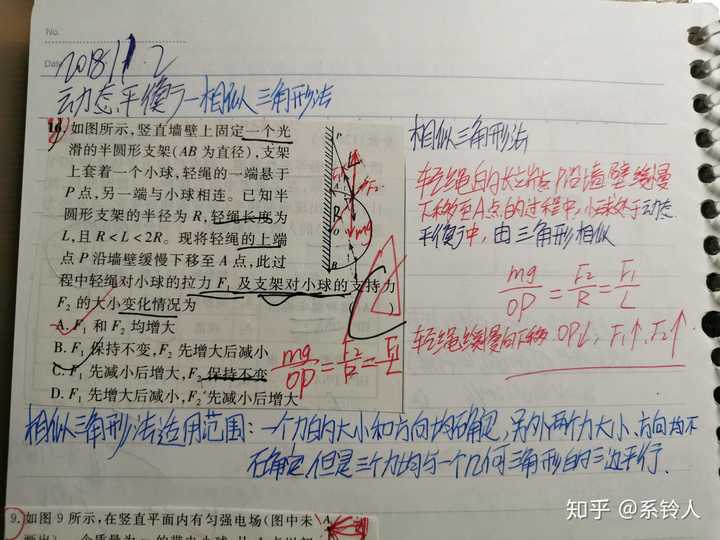 No.
Date
2018 11.2
动态平衡—相似三角形法
10. 如图所示,竖直墙壁上固定一个光
滑的半圆形支架(AB 为直径),支架
上套着一个小球,轻绳的一端悬于
P 点,另一端与小球相连。已知半
圆形支架的半径为 R,轻绳长度为
L,且 R<L<2R。现将轻绳的上端
点 P 沿墙壁缓慢下移至 A 点,此过
程中轻绳对小球的拉力 F₁ 及支架对小球的支持力
F₂ 的大小变化情况为
A. F₁ 和 F₂ 均增大
B. F₁ 保持不变,F₂ 先增大后减小
C. F₁ 先减小后增大,F₂ 保持不变
D. F₁ 先增大后减小,F₂ 先减小后增大
P
A
O
B
mg
mg/OP = F₂/R = F₁/L
相似三角形法
轻绳的上端点P沿墙壁缓慢
下移至A点的过程中,小球处于动态
平衡中,由三角形相似
mg/OP = F₂/R = F₁/L
轻绳缓慢向下移 OP↓, F₁↑, F₂↑
相似三角形法适用范围:一个力的大小和方向均确定,另外两个力大小、方向均不
确定,但是三个力均与一个几何三角形的三边平行.
9. 如图 9 所示,在竖直平面内有匀强电场(图中未
知乎 @系铃人